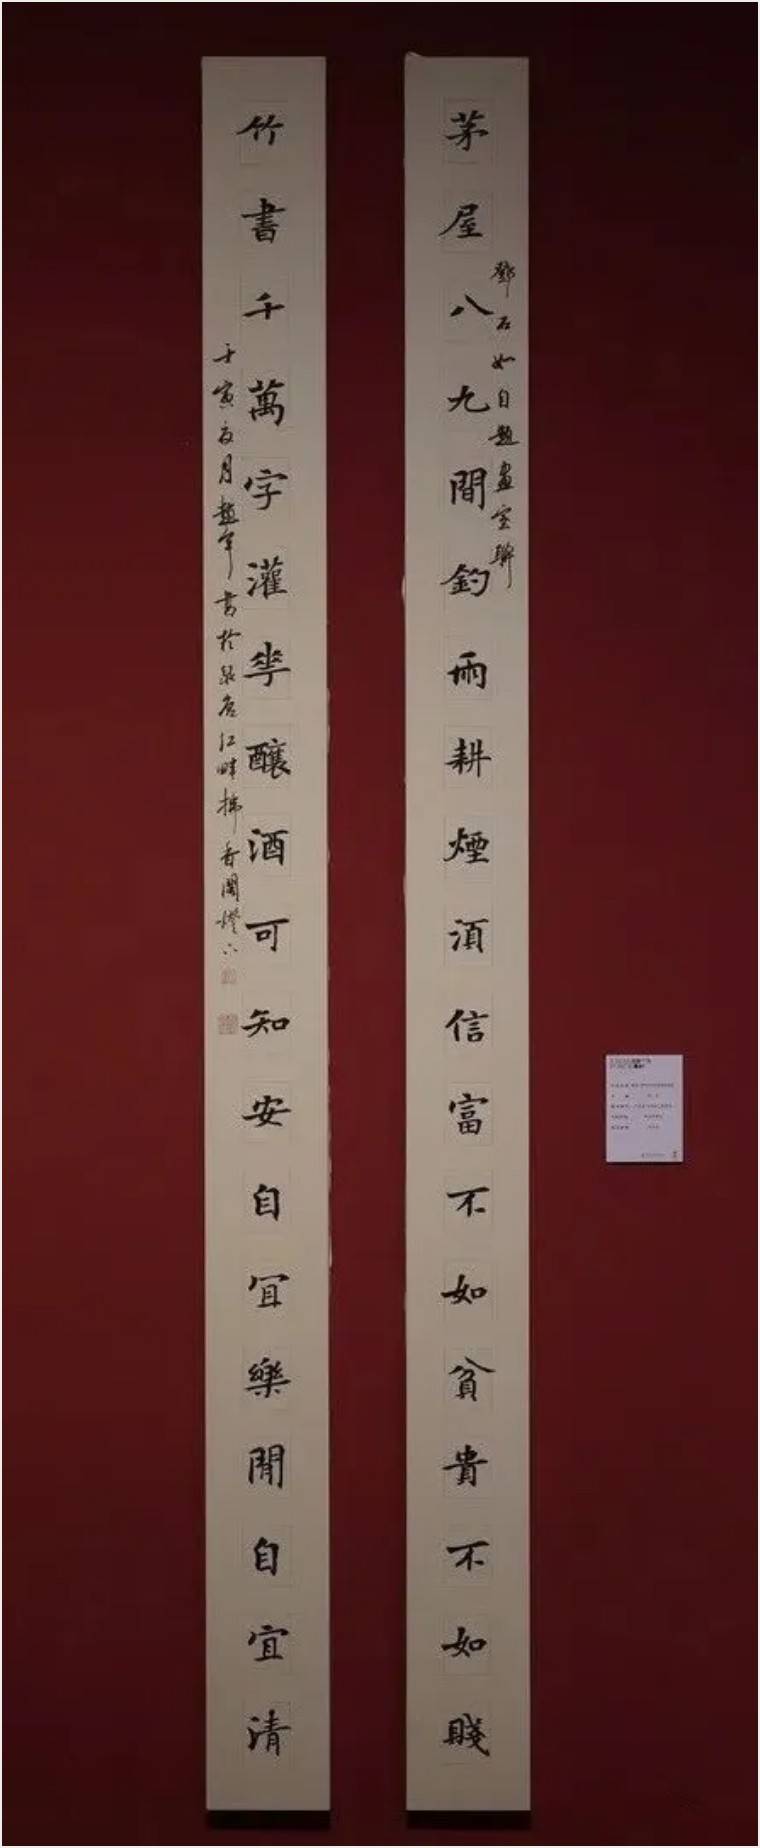 茅屋八九間釣雨耕煙湏信富不如貧貴不如賤
鄧石如自題畫室聯
竹書千萬字灌華釀酒可知安自宜樂閒自宜清
壬寅夏月趙軍書於泉唐江畔拂香閣燈下